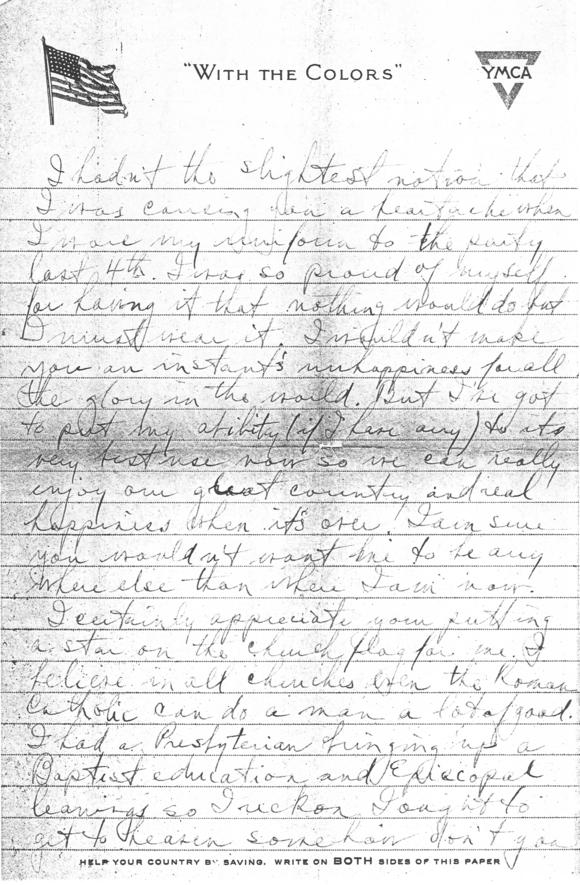 "WITH THE COLORS"
YMCA
I hadn't the slightest notion that
I was causing you a heartache when
I wore my uniform to the party
last 4th. I was so proud of myself
for having it that nothing would do but
I must wear it. I wouldn't make
you an instant's unhappiness for all
the glory in the world. But I've got
to put my ability (if I have any) to its
very best use now so we can really
enjoy our great country and real
happiness when it's over. I am sure
you wouldn't want me to be any
where else than where I am now.
I certainly appreciate your putting
a star on the church flag for me. I
believe in all churches even the Roman
Catholic can do a man a lot of good.
I had a Presbyterian bringing up a
Baptist education and Episcopal
leanings so I reckon I ought to
get to heaven somehow don't you
HELP YOUR COUNTRY BY SAVING. WRITE ON BOTH SIDES OF THIS PAPER